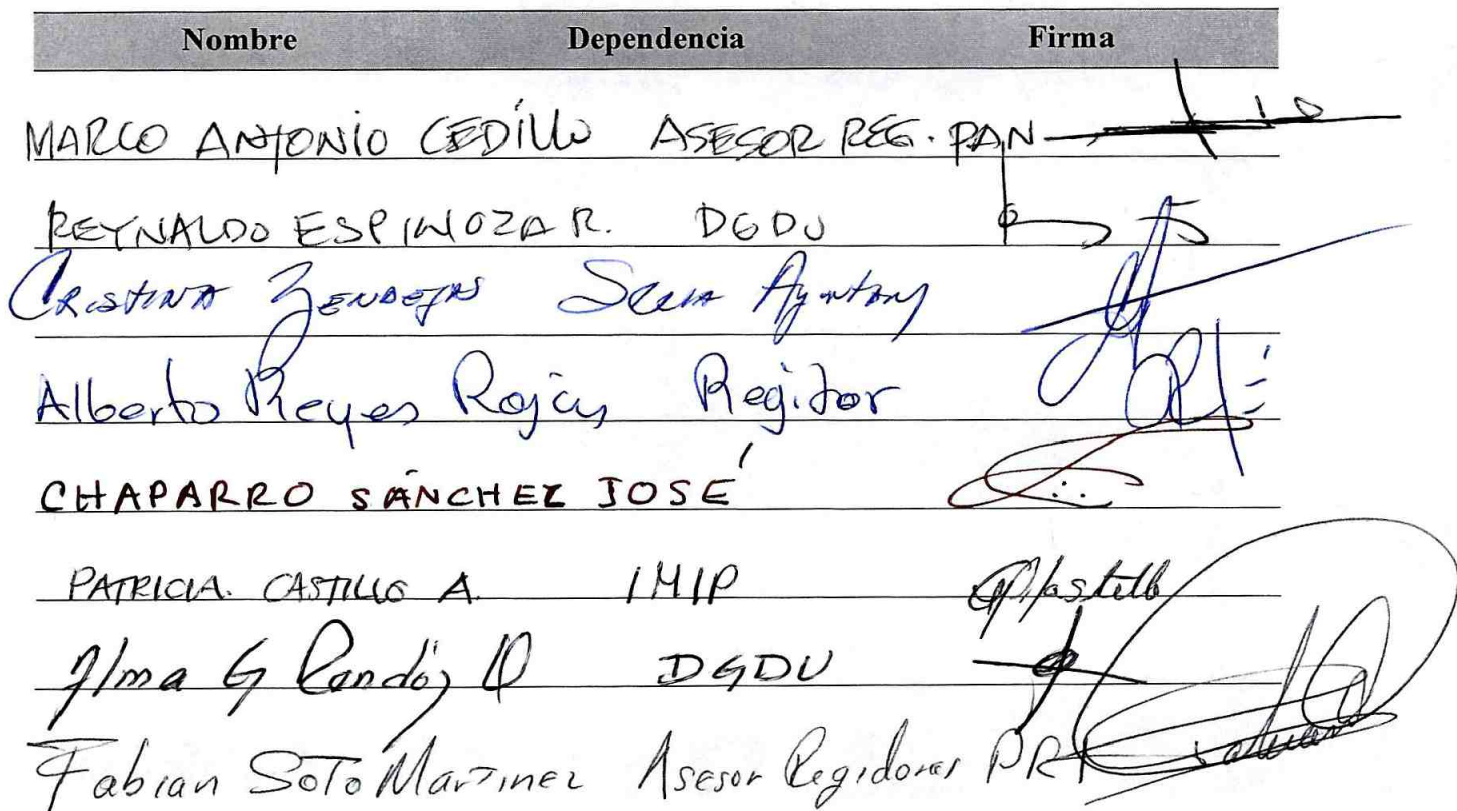 Nombre Dependencia Firma
MARCO ANTONIO CEDILLO ASESOR REG. PAN
REYNALDO ESPINOZA R. DGDU
CRISTINA ZENDEJAS
Alberto Reyes Rojas Regidor
CHAPARRO SÁNCHEZ JOSÉ
PATRICIA. CASTILLO A. IMIP
G DGDU
Fabian Soto Martinez Asesor Regidores PRI